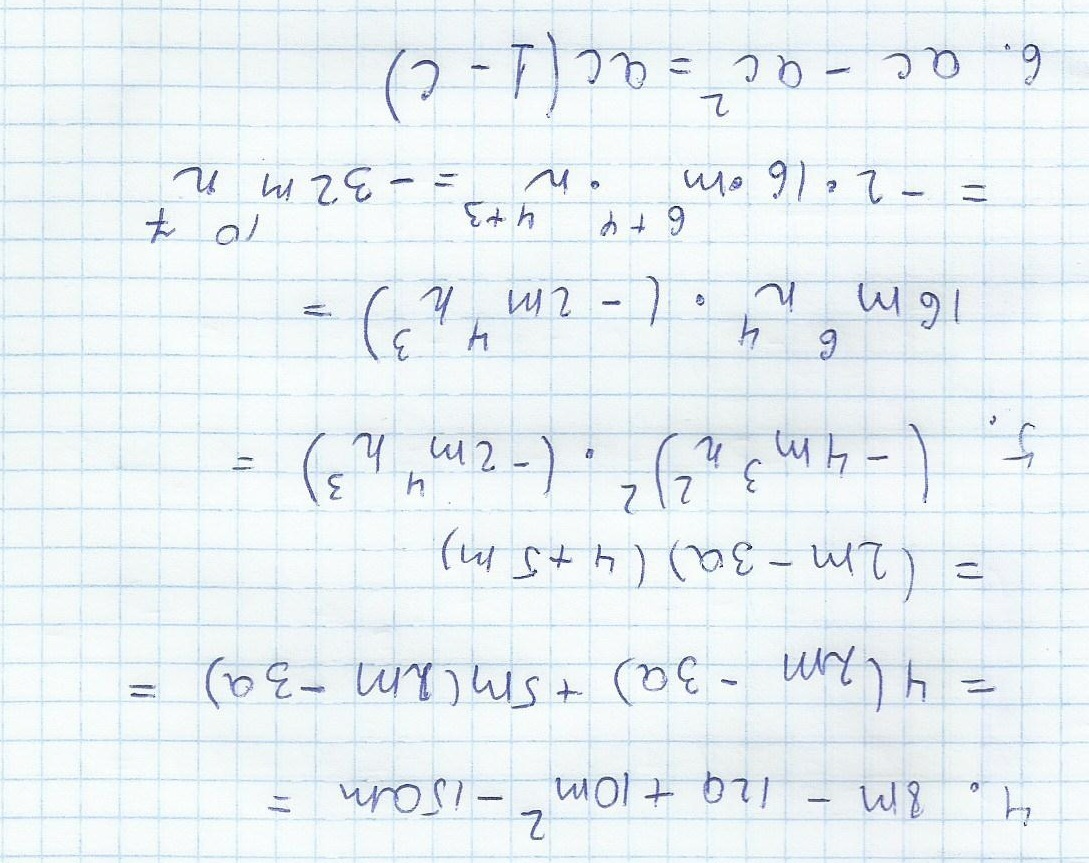 4. 8m - 12a + 10m² - 15am =
= 4(2m - 3a) + 5m(2m - 3a) =
= (2m - 3a)(4 + 5m)
5. (-4m³n²)² · (-2m⁴n³) =
16m⁶n⁴ · (-2m⁴n³) =
= -2·16·m⁶⁺⁴·n⁴⁺³ = -32m¹⁰n⁷
6. ac - ac² = ac(1 - c)